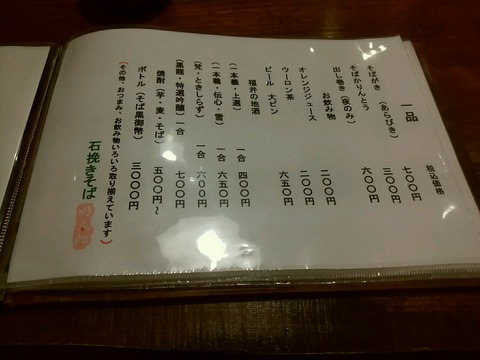 一品
税込価格
そばがき（あらびき） 七〇〇円
そばかりんとう 三〇〇円
出し巻き（夜のみ） 六〇〇円
お飲み物
オレンジジュース 二〇〇円
ウーロン茶 二〇〇円
ビール 大ビン 六五〇円
福井の地酒
（一本義・上選） 一合 四〇〇円
（一本義・伝心・雪） 一合 六五〇円
（梵・ときしらず） 一合 六〇〇円
（黒龍・特選吟醸） 一合 七〇〇円
焼酎（芋・麦・そば） 五〇〇円～
ボトル（そば黒御幣） 三〇〇〇円
（その他、おつまみ、お飲み物いろいろ取り揃えています）
石挽きそば